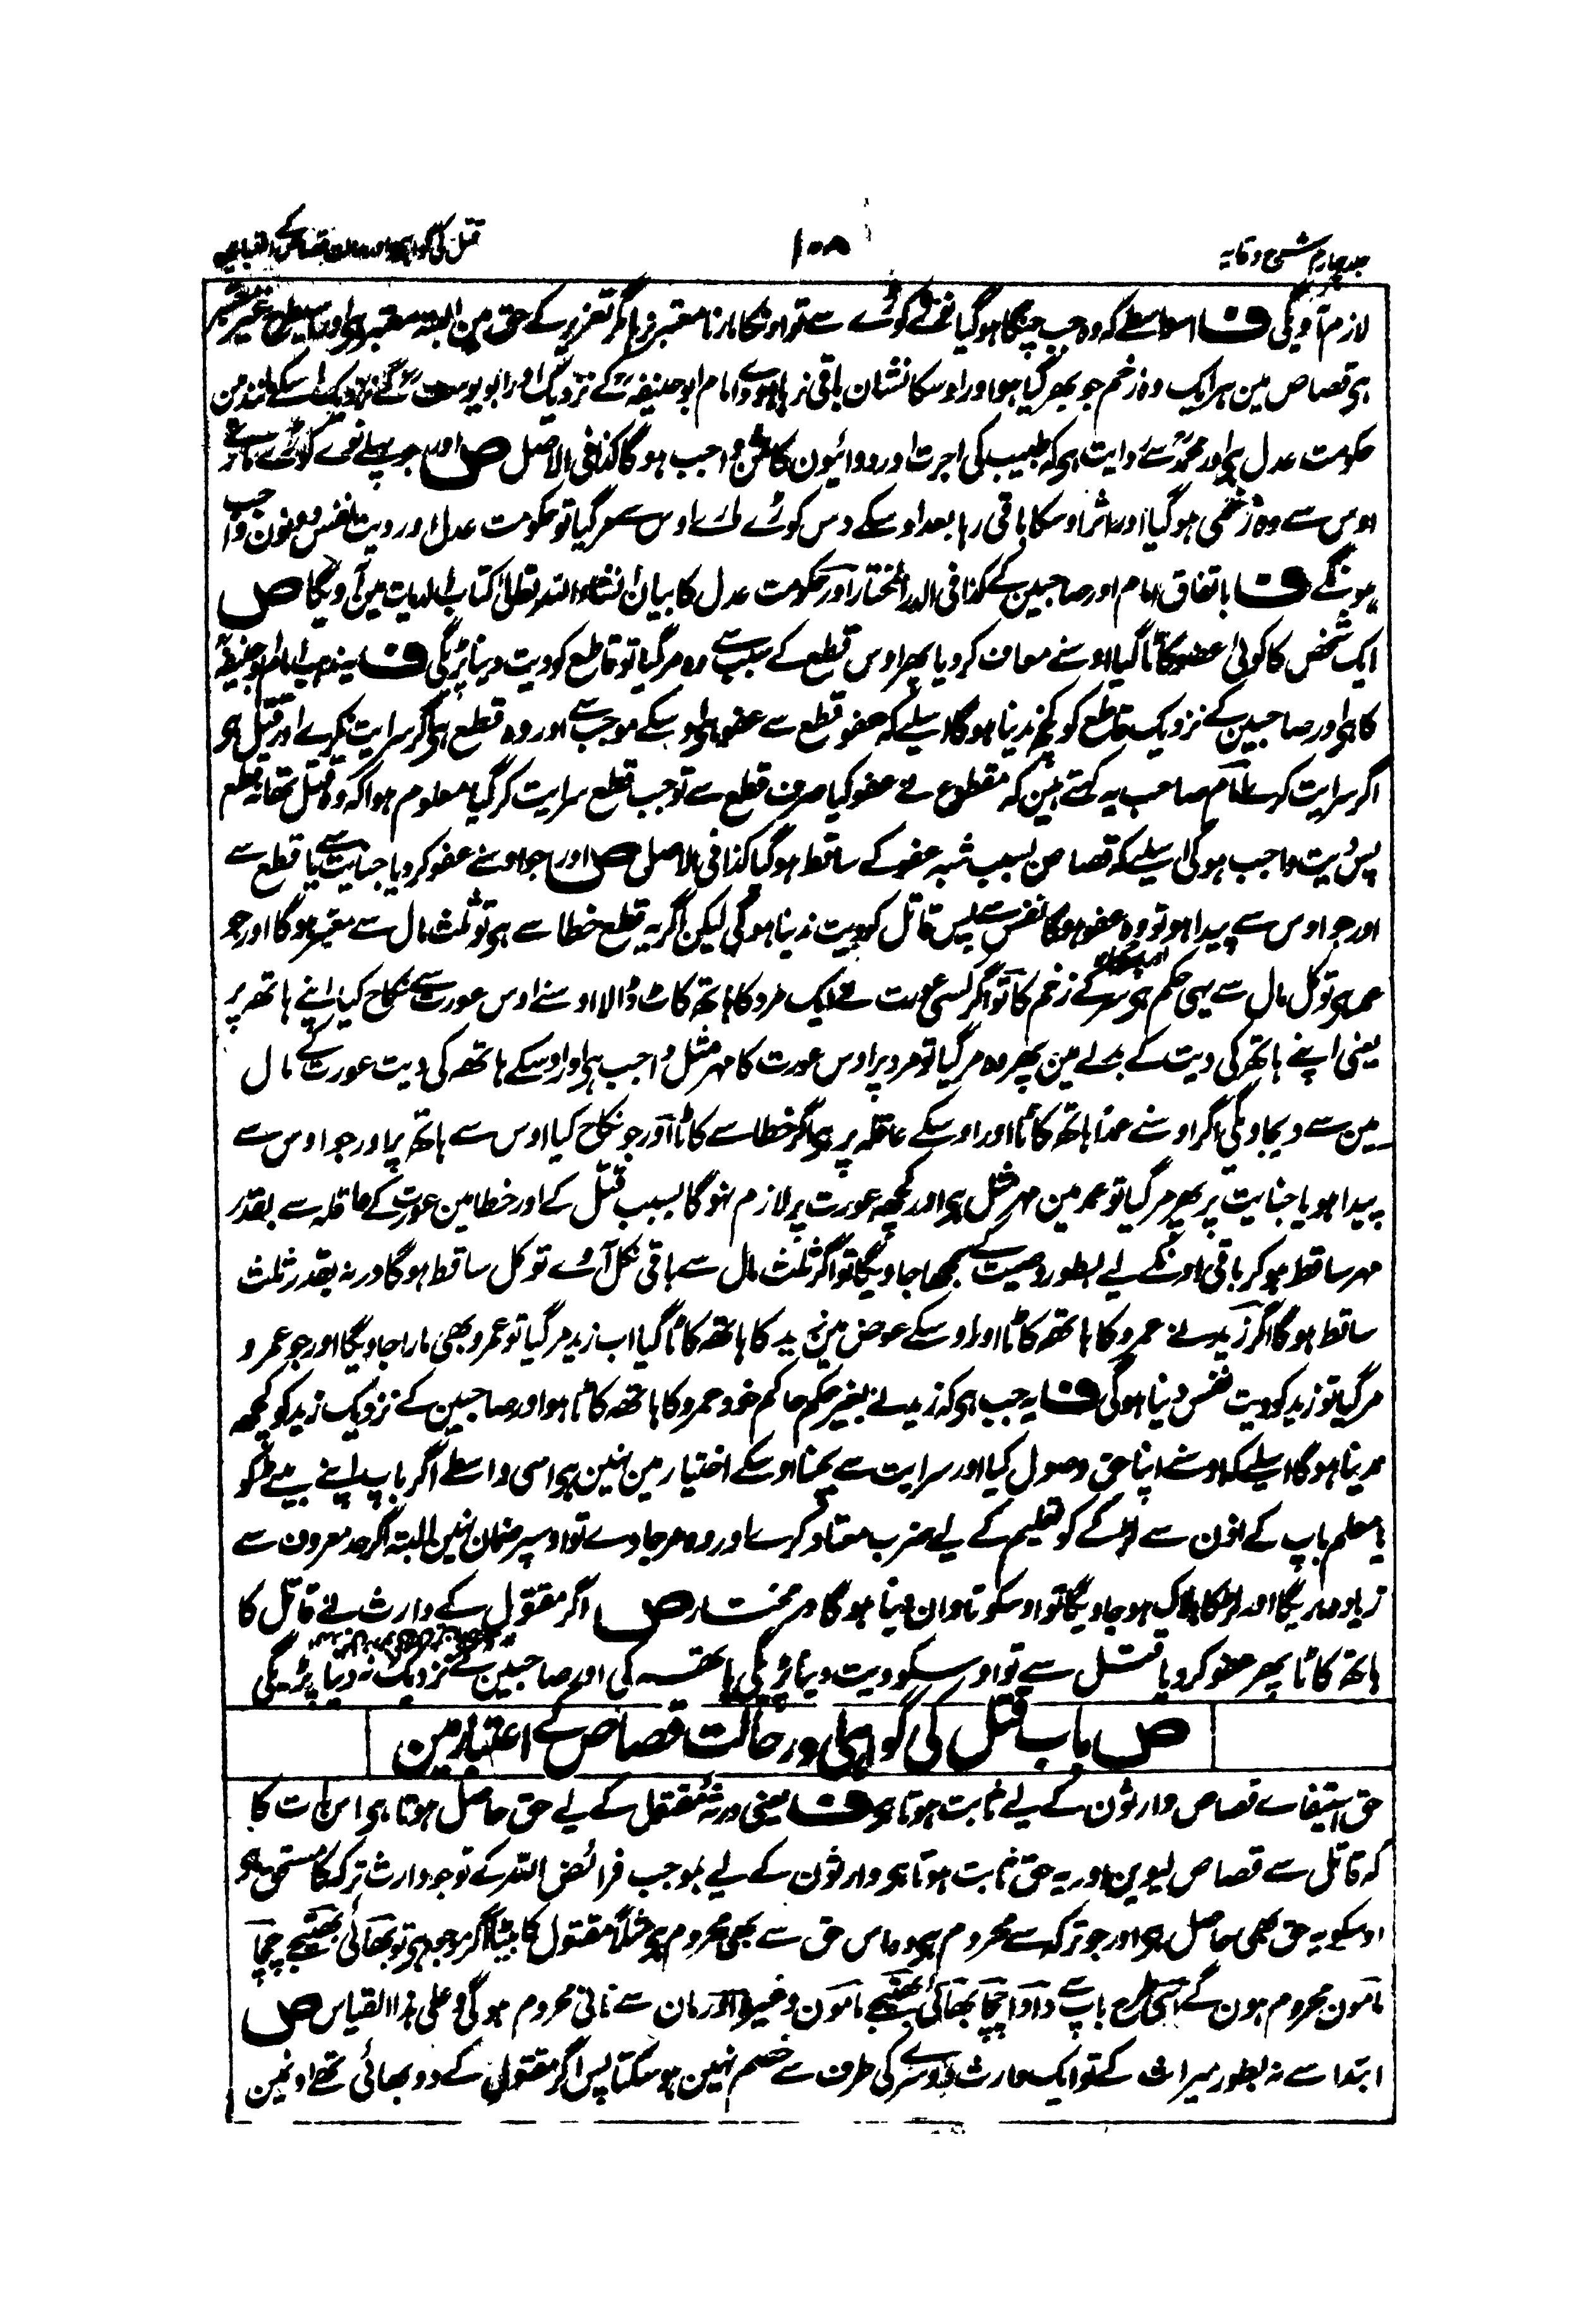 جلد چہارم شرح وقایہ
۱۰۸
قتل کی گواہی اور حالت قصاص کے اعتبار مین
لازم آویگی ف اسواسطے کہ وہ جب چنگا ہو گیا نوے کوڑے سے تو اونکا مارنا معتبر نرہا مگر تعزیر کے حق مین البتہ معتبر ہی اور اسیطرح غیر معتبر
ہی قصاص مین ہر ایک وہ زخم جو بھر گیا ہو اور اوسکا نشان باقی نرہا ہووے امام ابو حنیفہؒ کے نزدیک اور ابو یوسفؒ کے نزدیک اسکے مانند مین
حکومت عدل ہی اور محمدؒ سے روایت ہی کہ طبیب کی اجرت اور دوائیون کا ثمن واجب ہوگا کذا فی الاصل ص اور جو پہلے نوے کوڑے مارے
اوس سے وہ زخمی ہو گیا اور اثر اوسکا باقی رہا بعد اوسکے دس کوڑے مارے اوس سے مر گیا تو حکومت عدل اور دیت نفس دونون واجب
ہونگے ف باتفاق امام اور صاحبین کے کذا فی الدر المختار اور حکومت عدل کا بیان انشاء اللہ تعالیٰ کتاب الدیات مین آویگا ص
ایک شخص کا کوئی عضو کاٹا گیا اوسنے معاف کردیا پھر اوس قطع کے سبب سے وہ مر گیا تو قاطع کو دیت دینا پڑیگی ف یہ مذہب امام ابو حنیفہؒ
کا ہی اور صاحبین کے نزدیک قاطع کو کچھ ندینا ہوگا اسلیے کہ عفو قطع سے عفو ہی اوسکے موجب سے اور وہ قطع ہی اگر سرایت نکرے اور قتل ہی
اگر سرایت کرے امام صاحب یہ کہتے ہین کہ مقطوع نے عفو کیا صرف قطع سے تو جب قطع سرایت کر گیا معلوم ہوا کہ وہ قتل تھا نہ قطع
پس دیت واجب ہوگی اسلیے کہ قصاص بسبب شبہ عفو کے ساقط ہوگیا کذا فی الاصل ص اور جو اوسنے عفو کردیا جنایت سے یا قطع سے
اور جو اوس سے پیدا ہو تو وہ عفو ہوگا نفس سے پس قاتل کو دیت ندینا ہوگی لیکن اگر یہ قطع خطا سے ہی تو ثلث مال سے معتبر ہوگا اور جو
عمدا ہی تو کل مال سے یہی حکم ہی سر کے زخم کا تو اگر کسی عورت نے ایک مرد کا ہاتھ کاٹ ڈالا اوسنے اوس عورت سے نکاح کیا اپنے ہاتھ پر
یعنی اپنے ہاتھ کی دیت کے بدلے مین پھر وہ مر گیا تو مرد پر اوس عورت کا مہر مثل واجب ہی اور اوسکے ہاتھ کی دیت عورت کے مال
مین سے دیجاویگی اگر اوسنے عمدا ہاتھ کاٹا اور اوسکے عاقلہ پر ہی اگر خطا سے کاٹا اور جو نکاح کیا اوس سے ہاتھ پر اور جو اوس سے
پیدا ہو یا جنایت پر پھر مر گیا تو عمد مین مہر مثل ہی اور کچھ عورت پر لازم نہوگا بسبب قتل کے اور خطا مین عورت کے عاقلہ سے بقدر
مہر ساقط ہو کر باقی اونکے لیے بطور وصیت کے سمجھا جاویگا تو اگر ثلث مال سے باقی نکل آوے تو کل ساقط ہوگا ورنہ بقدر ثلث
ساقط ہوگا اگر زید نے عمرو کا ہاتھ کاٹا اور اوسکے عوض مین زید کا ہاتھ کاٹا گیا اب زید مر گیا تو عمرو بھی مارا جاویگا اور جو عمرو
مر گیا تو زید کو دیت نفس دینا ہوگی ف یہ جب ہی کہ زید نے بغیر حکم حاکم خود عمرو کا ہاتھ کاٹا ہو اور صاحبین کے نزدیک زید کو کچھ
ندینا ہوگا اسلیے کہ اوسنے اپنا حق وصول کیا اور سرایت سے بچنا اوسکے اختیار مین نہین ہی اسی واسطے اگر باپ اپنے بیٹے کو
یا معلم باپ کے اذن سے لڑکے کو تعلیم کے لیے ضرب معتاد کرے اور وہ مر جاوے تو اوسپر ضمان نہین البتہ اگر حد معروف سے
زیادہ ماریگا اور لڑکا ہلاک ہو جاویگا تو اوسکو تاوان دینا ہوگا در مختار ص اگر مقتول کے وارث نے قاتل کا
ہاتھ کاٹا پھر عفو کردیا قتل سے تو اوسکو دیت دینا پڑیگی ہاتھ کی اور صاحبین کے نزدیک نہ دینا پڑیگی
ص باب قتل کی گواہی اور حالت قصاص کے اعتبار مین
حق استیفاے قصاص وارثون کے لیے ثابت ہوتا ہی ف یعنی ورثۂ مقتول کے لیے حق حاصل ہوتا ہی اس بات کا
کہ قاتل سے قصاص لیوین اور یہ حق ثابت ہوتا ہی وارثون کے لیے بموجب فرائض اللہ کے تو جو وارث ترکہ کا مستحق ہی
اوسکو یہ حق بھی حاصل ہی اور جو ترکہ سے محروم ہی وہ اس حق سے بھی محروم ہی مثلاً مقتول کا بیٹا اگر موجود ہی تو بھائی بھتیجے چچا
مامون محروم ہون گے اسی طرح باپ سے دادا چچا بھائی بھتیجے مامون وغیرہ اور مان سے نانی محروم ہوگی و علی ہذا القیاس ص
ابتدا سے نہ بطور میراث کے تو ایک وارث دوسرے کی طرف سے خصم نہین ہوسکتا پس اگر مقتول کے دو بھائی تھے اونمین